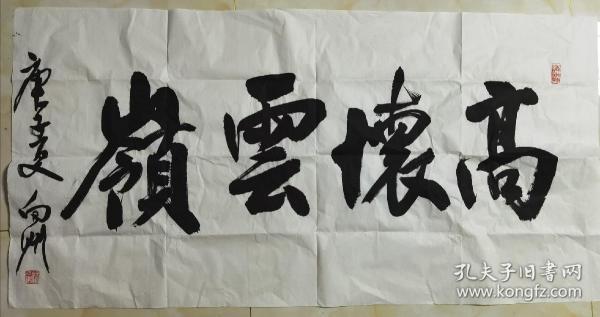 高懷雲嶺
孔夫子旧书网
www.kongfz.com